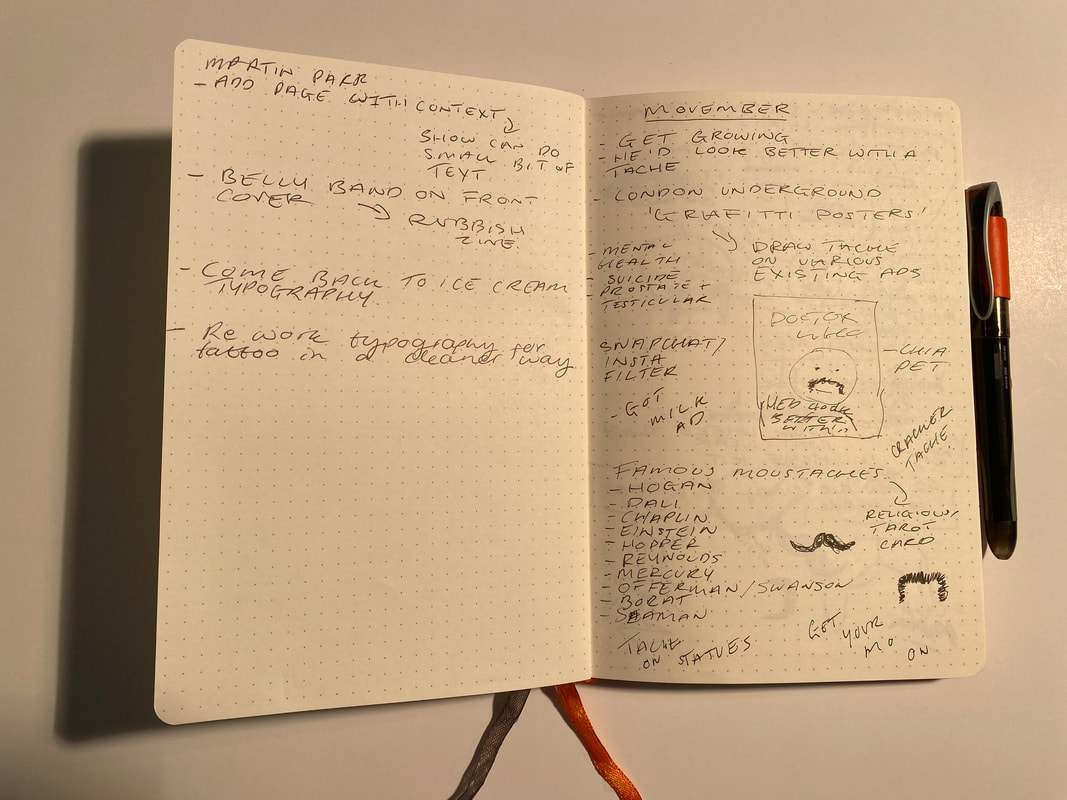 MARTIN PARR
- ADD PAGE WITH CONTEXT
SHOW CAN DO
SMALL BIT OF
TEXT.
- BELLY BAND ON FRONT
COVER
RUBBISH
ZINE.
- COME BACK TO ICE CREAM
TYPOGRAPHY.
- Re work typography for
tattoo in a cleaner way
MOVEMBER
- GET GROWING
- HE'D LOOK BETTER WITH A
TACHE
- LONDON UNDERGROUND
'GRAFITTI POSTERS'
DRAW TACHE
ON VARIOUS
EXISTING ADS
- MENTAL
HEALTH
- SUICIDE
- PROSTATE +
- TESTICULAR
DOCTOR
WHO
HED LOOK
BETTER
WITH
- CHIA
PET
SNAPCHAT/
INSTA
FILTER
- GOT
MILK
AD
CRACKER
TACHE
FAMOUS MOUSTACHES
- HOGAN
- DALI
- CHAPLIN
- EINSTEIN
- HOPPER
- REYNOLDS
- MERCURY
- OFFERMAN/SWANSON
- BORAT
- SEAMAN
RELIGIOUS/
TAROT
CARD
TACHE
ON STATUES
GET
YOUR
MO
ON